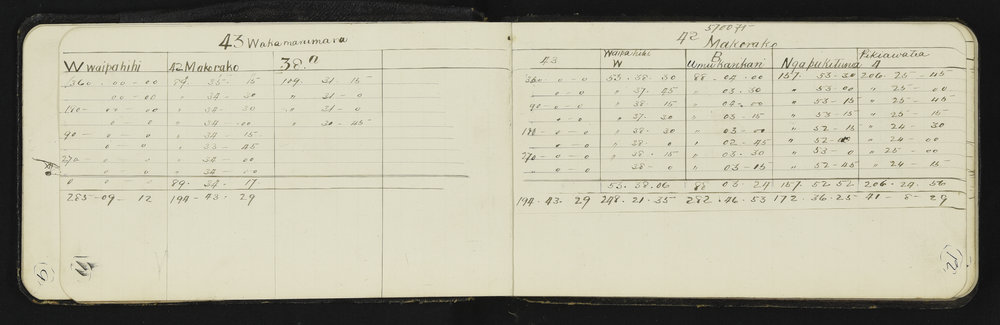 43 Wakamarumara
W waipahihi 42 Makorako 38 A
360 . 00 - 00 89 . 35 . 15 109 . 31 - 15
00 - 00 " 34 - 30 " 31 - 0
180 - 00 - 00 " 34 - 30 " 31 - 0
0 - 0 " 34 - 00 " 30 - 45
90 - 0 - 0 " 34 - 15
0 - 0 " 33 - 45
270 - 0 - 0 " 34 - 00
0 - 0 " 34 - 00
0 0 - 0 89 . 34 . 17
285 - 09 - 12 194 - 43 - 29
570071
42 Makorako
43 Waipahihi W B Umukarikari Ngapuketurua Pikiawatea A
360 - 0 - 0 53 . 38 . 30 88 . 04 . 00 157 . 53 . 30 206 . 25 - 45
" - 0 - 0 " 37 . 45 " 03 . 30 " 53 - 00 " 25 - 00
90 - 0 - 0 " 38 . 15 " 04 - 00 " 53 - 15 " 25 - 45
" - 0 - 0 " 37 . 30 " 03 - 15 " 53 - 15 " 25 - 15
180 - 0 - 0 " 38 . 30 " 03 - 00 " 52 - 15 " 24 - 30
" - 0 - 0 " 38 . 0 " 02 - 45 " 52 - 00 " 24 - 00
270 - 0 - 0 " 38 . 15 " 03 - 30 " 53 - 0 " 25 - 00
" - 0 - 0 " 38 - 0 " 03 - 15 " 52 - 45 " 24 - 15
53 . 38 . 06 88 03 - 24 157 . 52 52 206 . 24 . 56
194 . 43 . 29 248 . 21 . 35 282 . 46 . 53 172 . 36 . 23 41 - 8 - 29
12